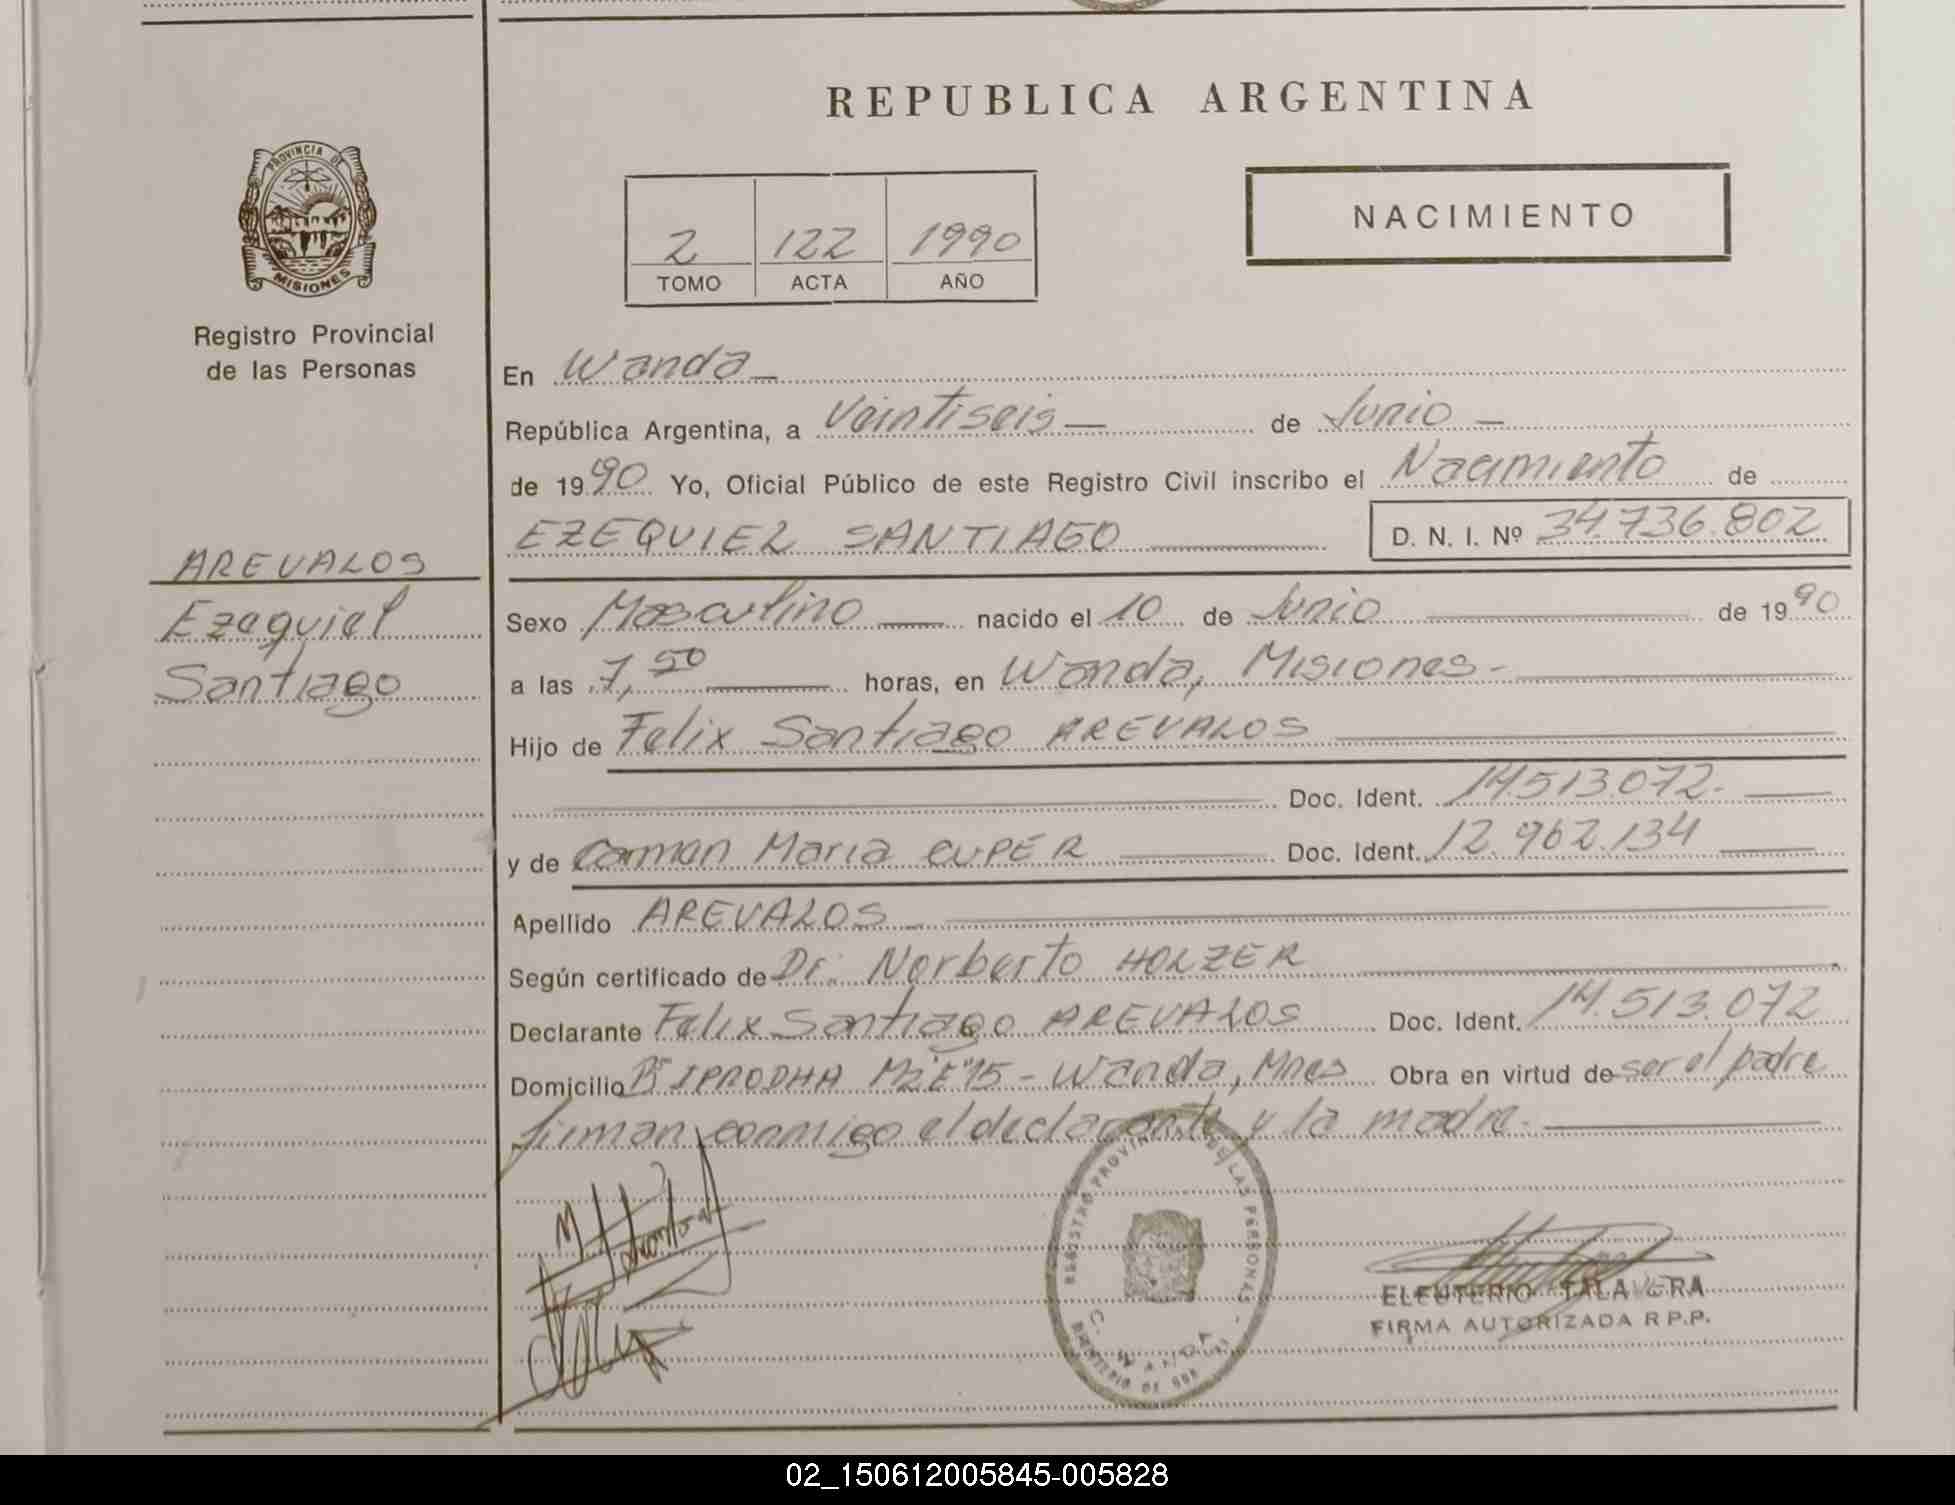 REPUBLICA ARGENTINA
PROVINCIA DE
MISIONES
Registro Provincial
de las Personas
2 122 1990
TOMO ACTA AÑO
NACIMIENTO
En Wanda
República Argentina, a Veintiseis de Junio
de 1990 Yo, Oficial Público de este Registro Civil inscribo el Nacimiento de
EZEQUIEL SANTIAGO D. N. I. Nº 34.736.802
AREVALOS
Ezequiel
Santiago
Sexo Masculino nacido el 10 de Junio de 1990
a las 7,50 horas, en Wanda, Misiones-
Hijo de Felix Santiago AREVALOS
Doc. Ident. 14.513.072.
y de Carmen Maria CUPER Doc. Ident. 12.962.134
Apellido AREVALOS
Según certificado de Dr. Norberto HOLZER
Declarante Felix Santiago AREVALOS Doc. Ident. 14.513.072
Domicilio Bº IPRODHA Mz"E"15 - Wanda, Mnes Obra en virtud de ser el padre
firman conmigo el declarante y la madre.
REGISTRO PROVINCIAL DE LAS PERSONAS
WANDA
ELEUTERIO TALAVERA
FIRMA AUTORIZADA R.P.P.
02_150612005845-005828